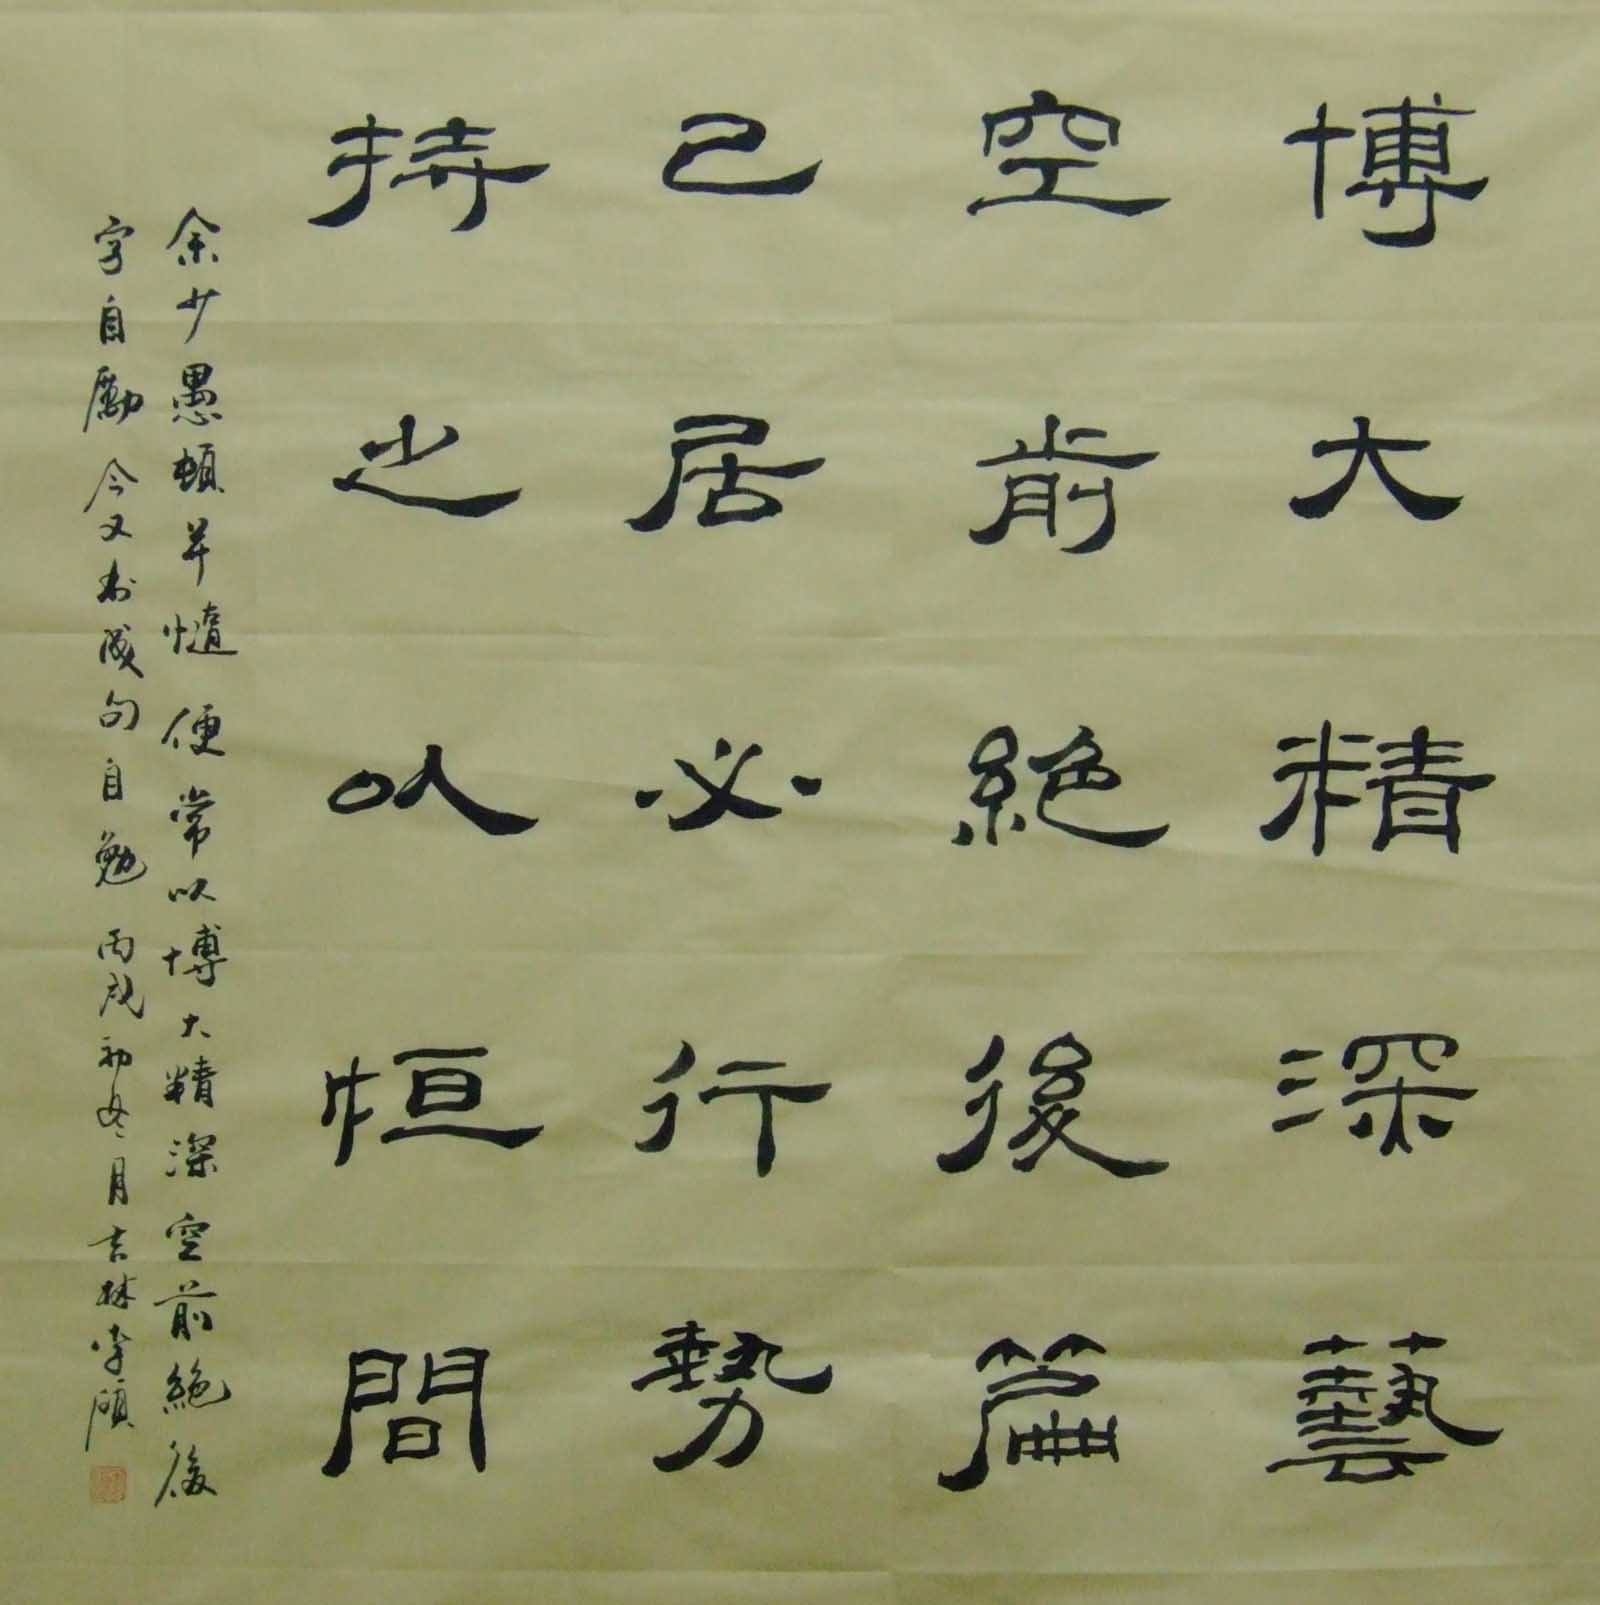 博大精深藝
空前絕後篇
己居必行勢
持之以恒間
余少愚頓并惰便常以博大精深空前絕後
字自勵今又書成句自勉丙戌初冬月吉林李碩